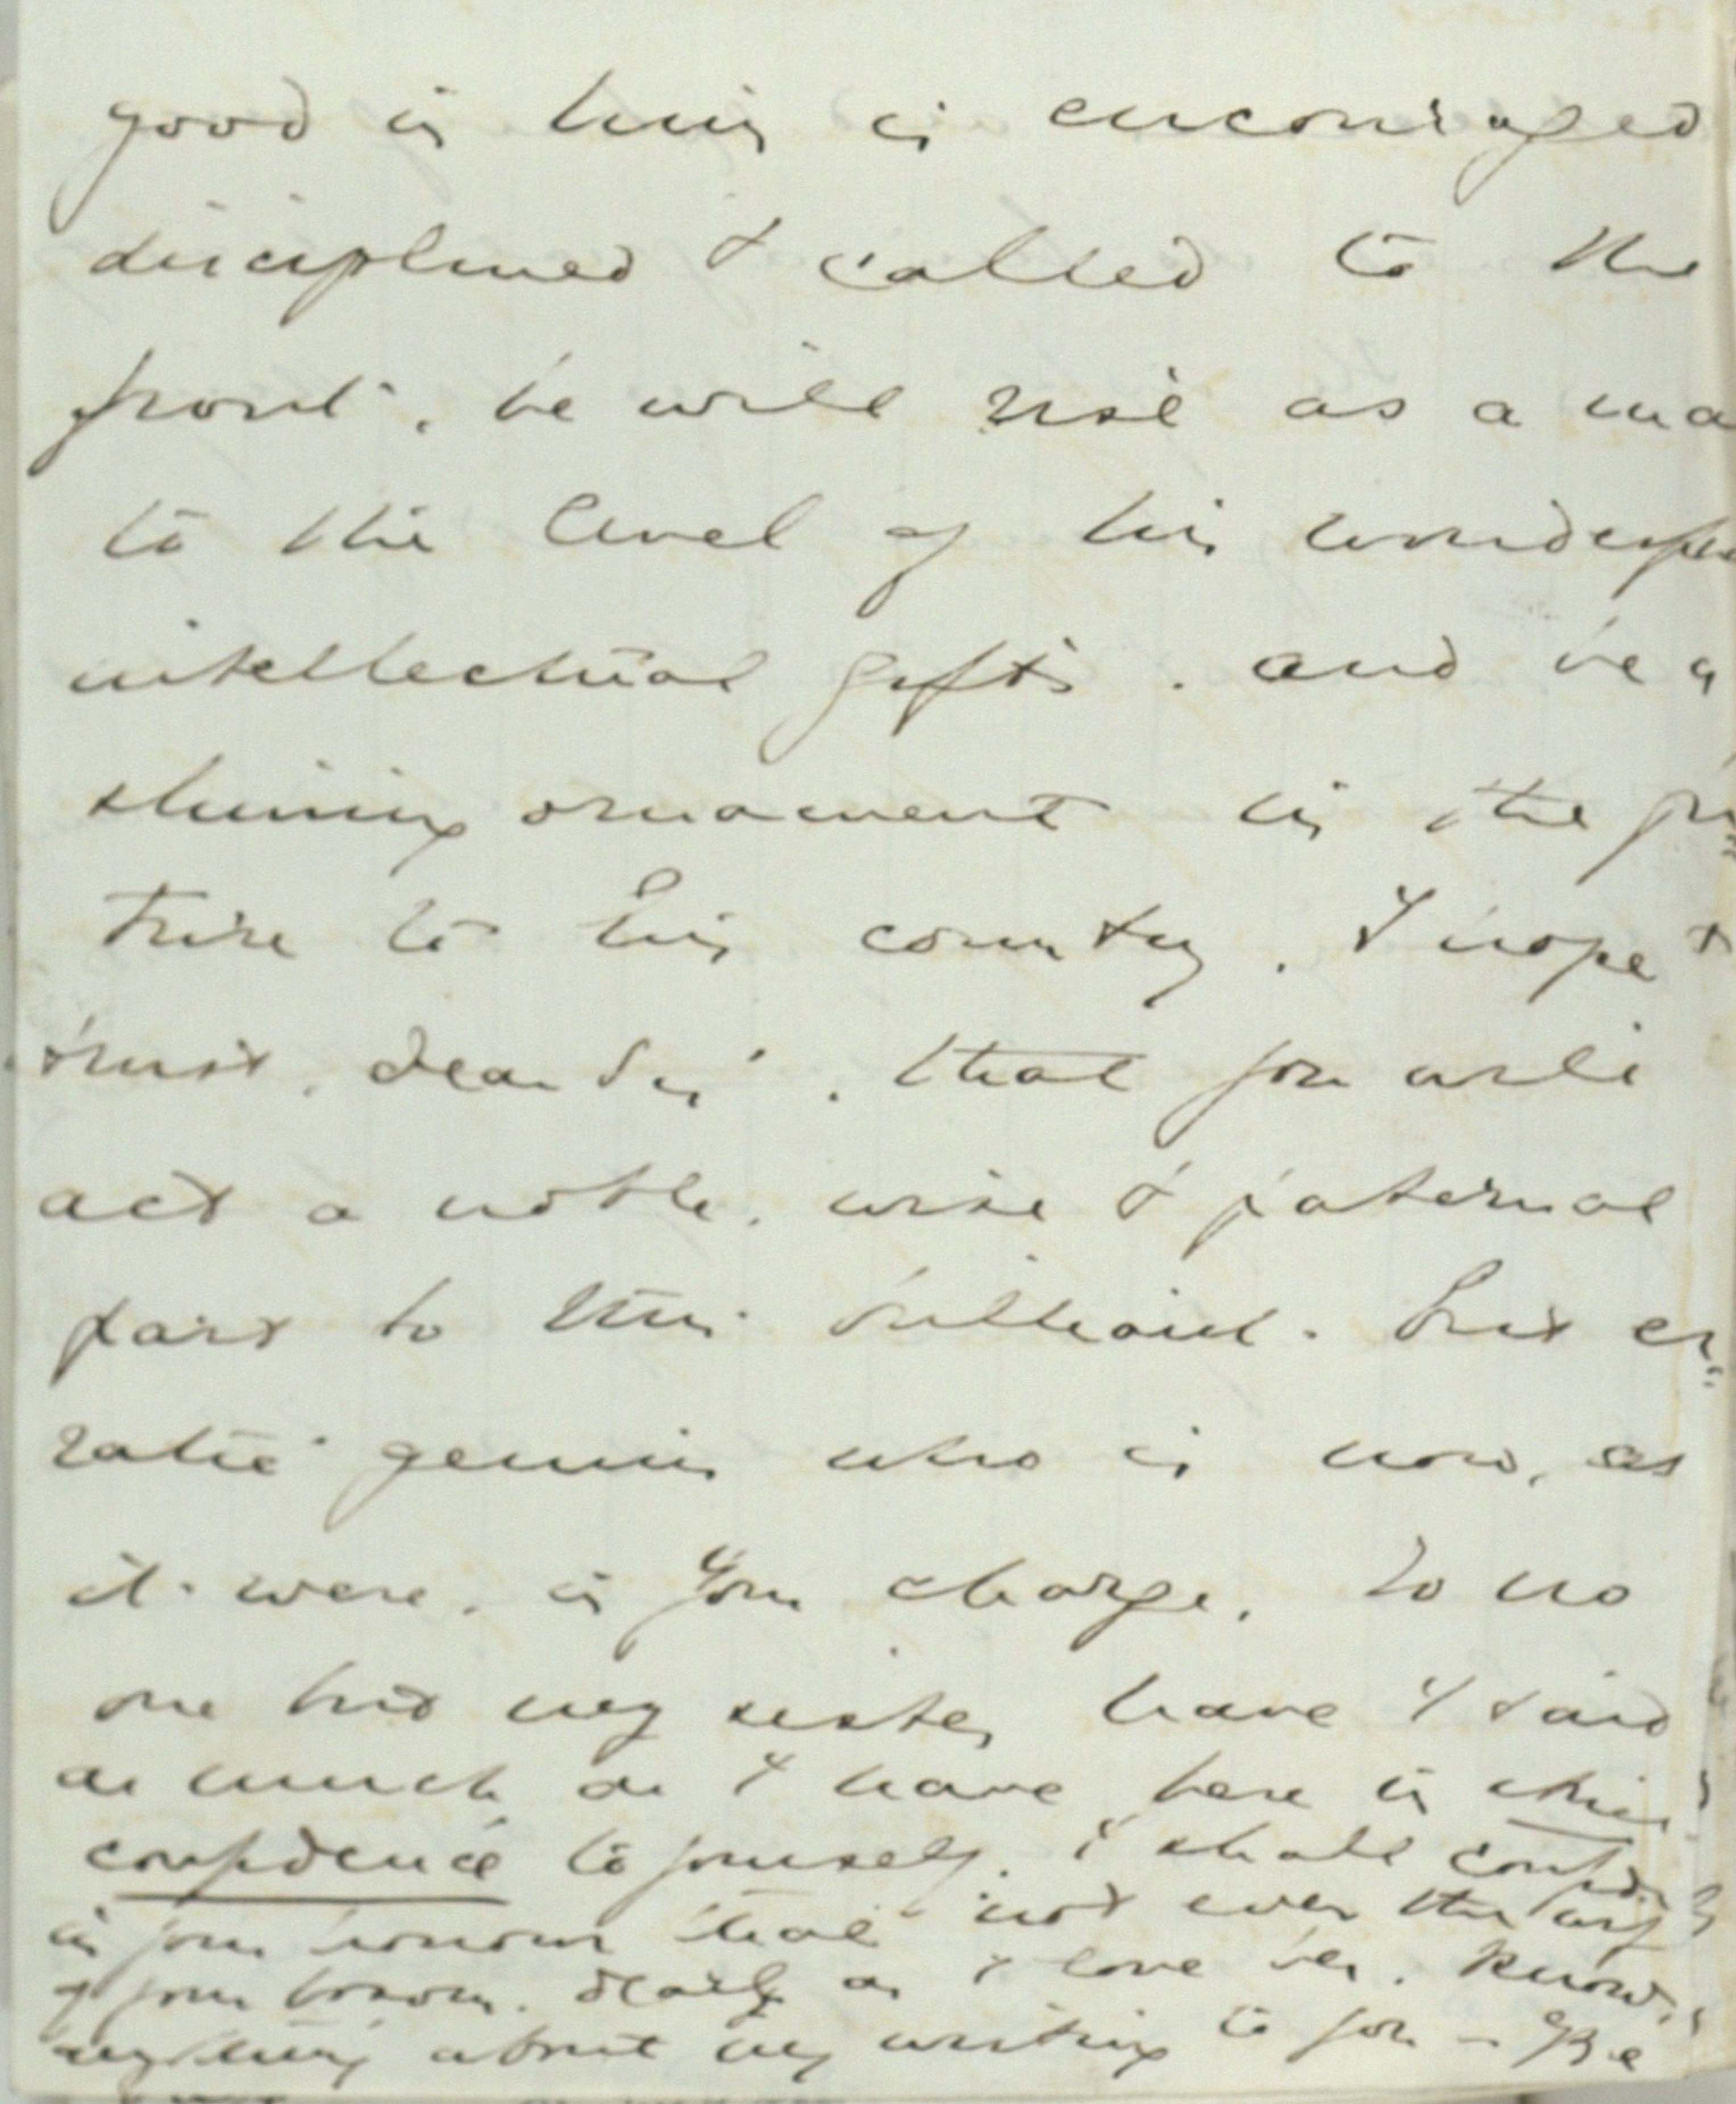 good in him is encouraged
disciplined & called to the
front, he will rise as a ma
to the level of his wonderfu
intellectual gifts, and be a
shining ornament in the fu
ture to his country. I hope &
trust, dear Sir, that you will
act a noble, wise & paternal
part to this brilliant, but er:
ratic genius who is now, as
it were, in your charge. To no
one but my sister have I said
as much as I have here in
confidence to yourself. I shall confide
in your honour that not even the wife
of your bosom, dearly as I love her, knows
anything about my writing to you - Be